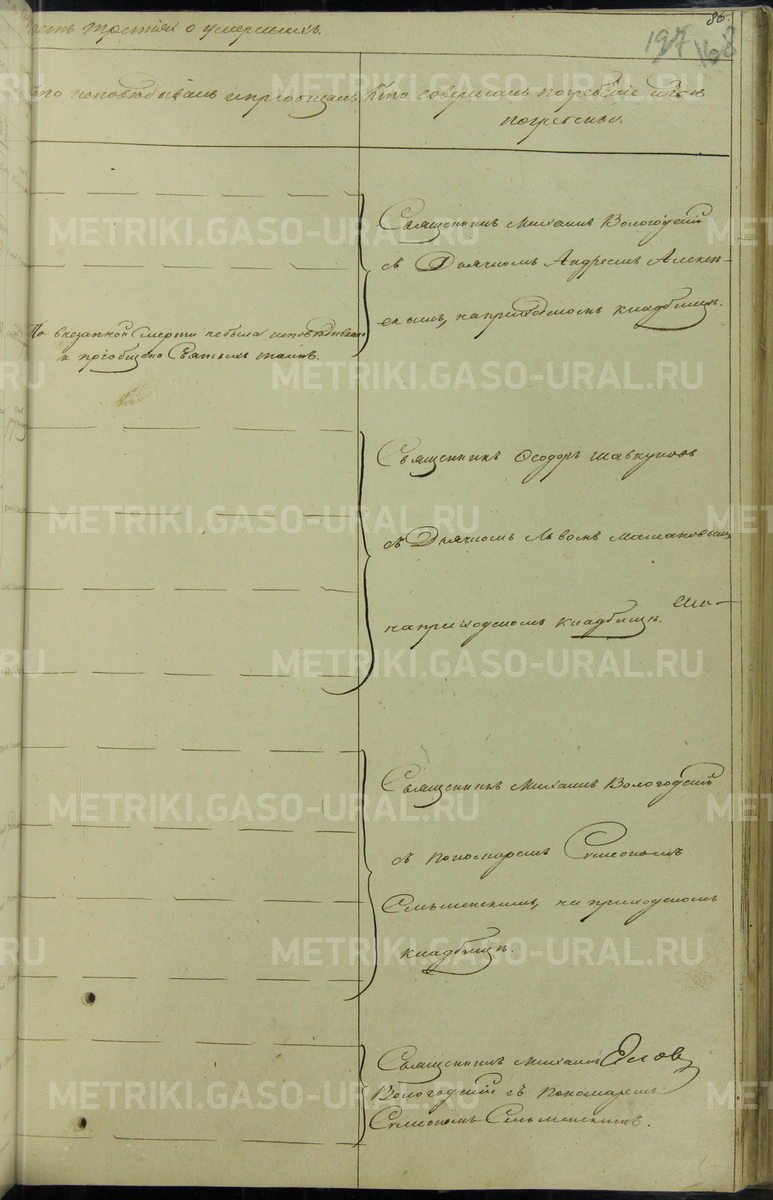 86.
197
168
Часть третія о умершихъ.
Кто исповѣдывалъ и пріобщалъ.
Кто совершалъ погребеніе и гдѣ
погребены.
Священникъ Михаилъ Вологодскій
съ Дьячкомъ Андреемъ Алексѣ-
евымъ, на приходскомъ кладбищѣ.
По внезапной смерти не была исповѣдывана
и пріобщена Святыхъ таинъ.
Священникъ Ѳеодоръ Шавкуновъ
съ Дьячкомъ Львомъ
на приходскомъ кладбищѣ.
Священникъ Михаилъ Вологодскій
съ Пономаремъ Симеономъ
на приходскомъ
кладбищѣ.
Священникъ Михаилъ
Вологодскій съ Пономаремъ
Симеономъ
METRIKI.GASO-URAL.RU